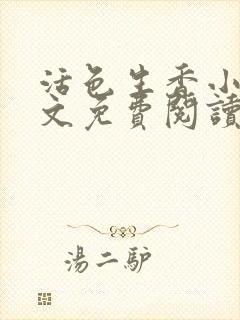 活色生香小
文免費閱讀
湯二驴